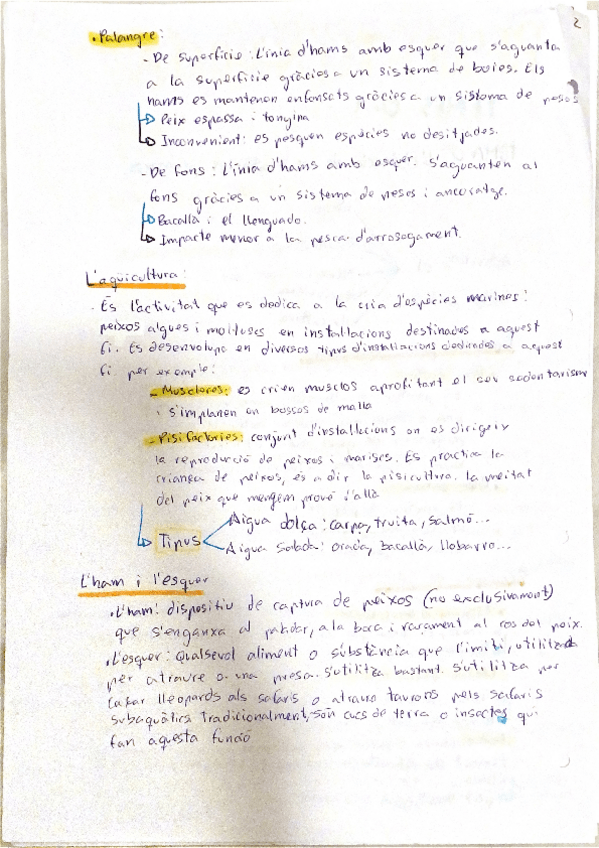 2
• Palangre:
- De superfície: Línia d'hams amb esquer que s'aguanta
a la superfície gràcies a un sistema de boies. Els
hams es mantenen enfonsats gràcies a un sistema de pesos
Peix espassa i tonyina
Inconvenient: es pesquen espècies no desitjades.
- De fons: Línia d'hams amb esquer. S'aguanten al
fons gràcies a un sistema de pesos i ancoratge.
Bacallà i el llenguado.
Impacte menor a la pesca d'arrosogament.
L'aquicultura:
. És l'activitat que es dedica a la cria d'espècies marines:
peixos algues i molluscs en installacions destinades a aquest
fi. Es desenvolupa en diversos tipus d'installacions dedicades a aquest
fi per exemple:
- Muscleres: es crien musclos aprofitant el seu sedentarisme
i s'implanten en bosses de malla
- Pisifactories: conjunt d'installacions on es dirigeix
la reproducció de peixos i mariscs. Es practica la
criança de peixos, és a dir la piscicultura. La meitat
del peix que mengem prové d'allà
Tipus
Aigua dolça: carpa, truita, salmó...
Aigua salada: orada, bacallà, llobarro...
L'ham i l'esquer
• L'ham: dispositiu de captura de peixos (no exclusivament)
que s'enganxa al paladar, a la boca i rarament al cos del peix.
• L'esquer: Qualsevol aliment o substància que l'imiti, utilitzada
per atraure a una presa. S'utilitza bastant. S'utilitza per
caçar lleopards als safaris o atraure taurons pels safaris
subaquàtics Tradicionalment, són cucs de terra o insectes qui
fan aquesta funció